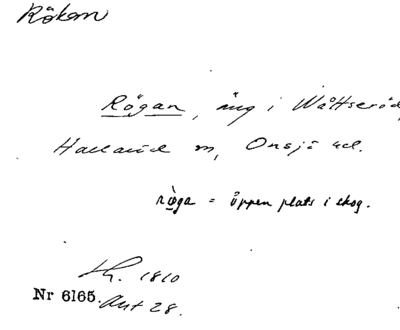 Rökan
Rögan, äng i Wåttseröd,
Hallaröd sn, Onsjö hd.
röga = öppen plats i skog.
Lh. 1810
Nr 6165. Akt 28.